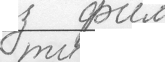 з фил
ти